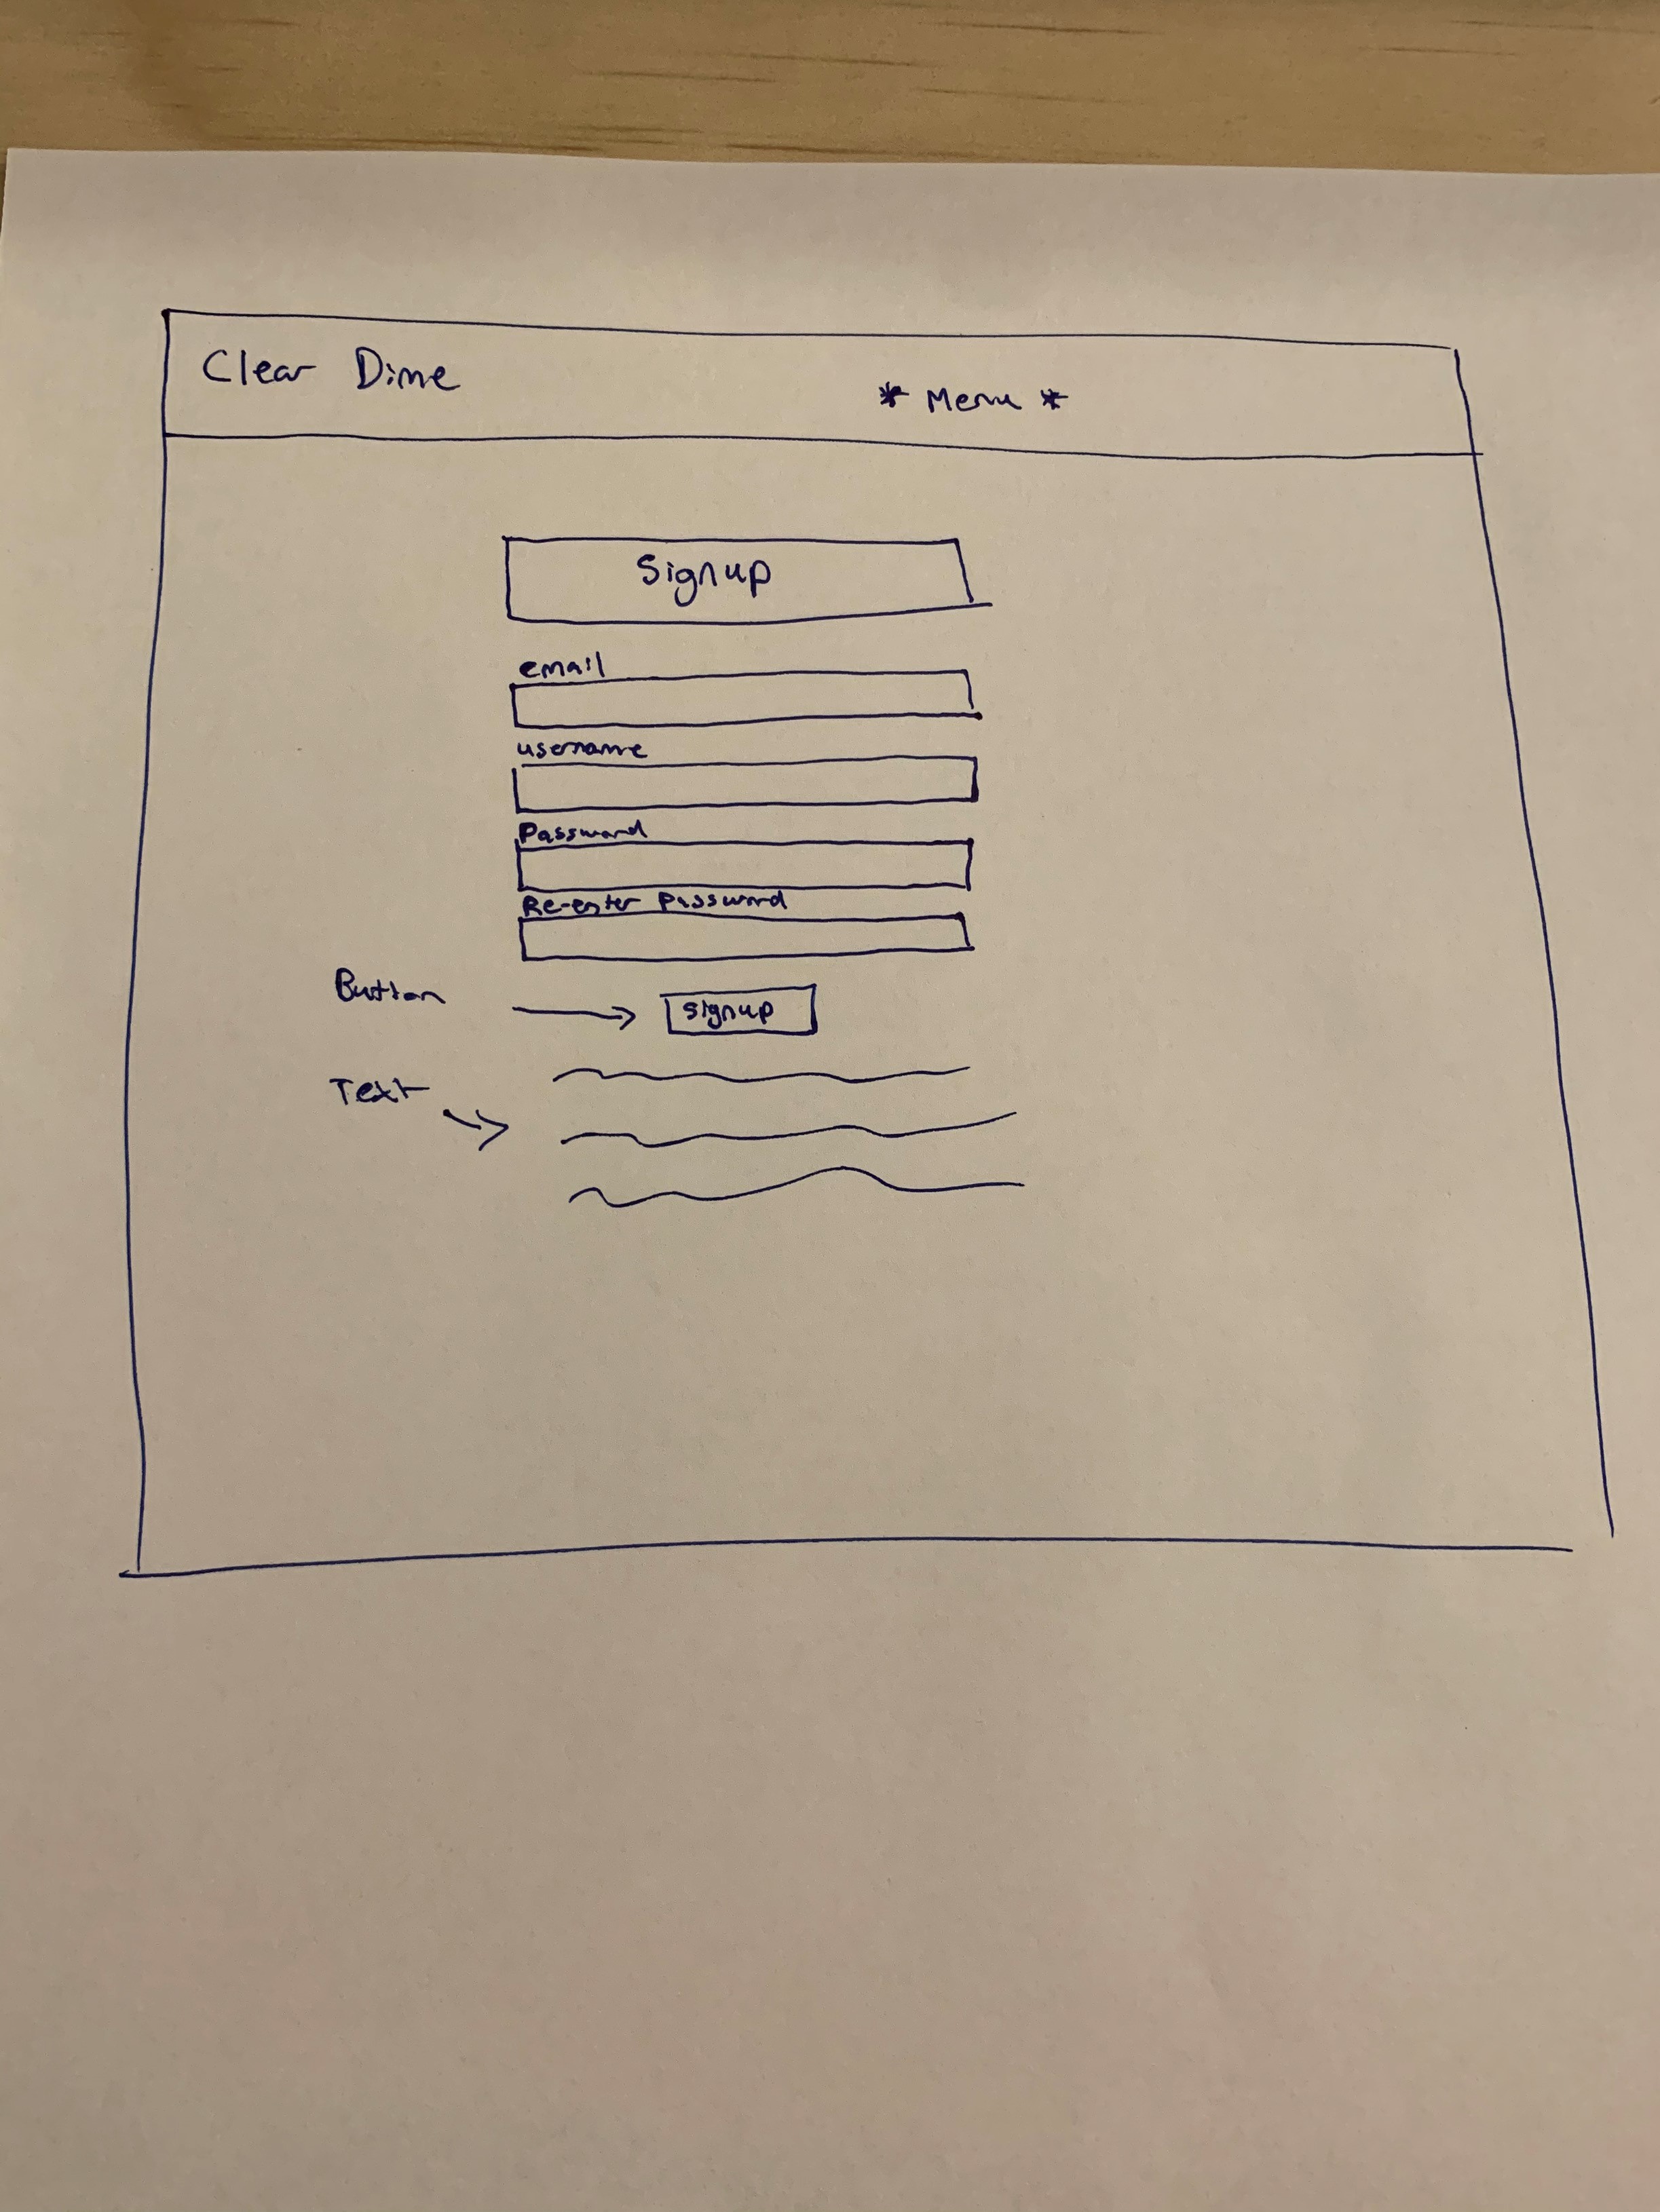 Clear Dime
* Menu *
Signup
email
username
Password
Re-enter Password
Button
signup
Text